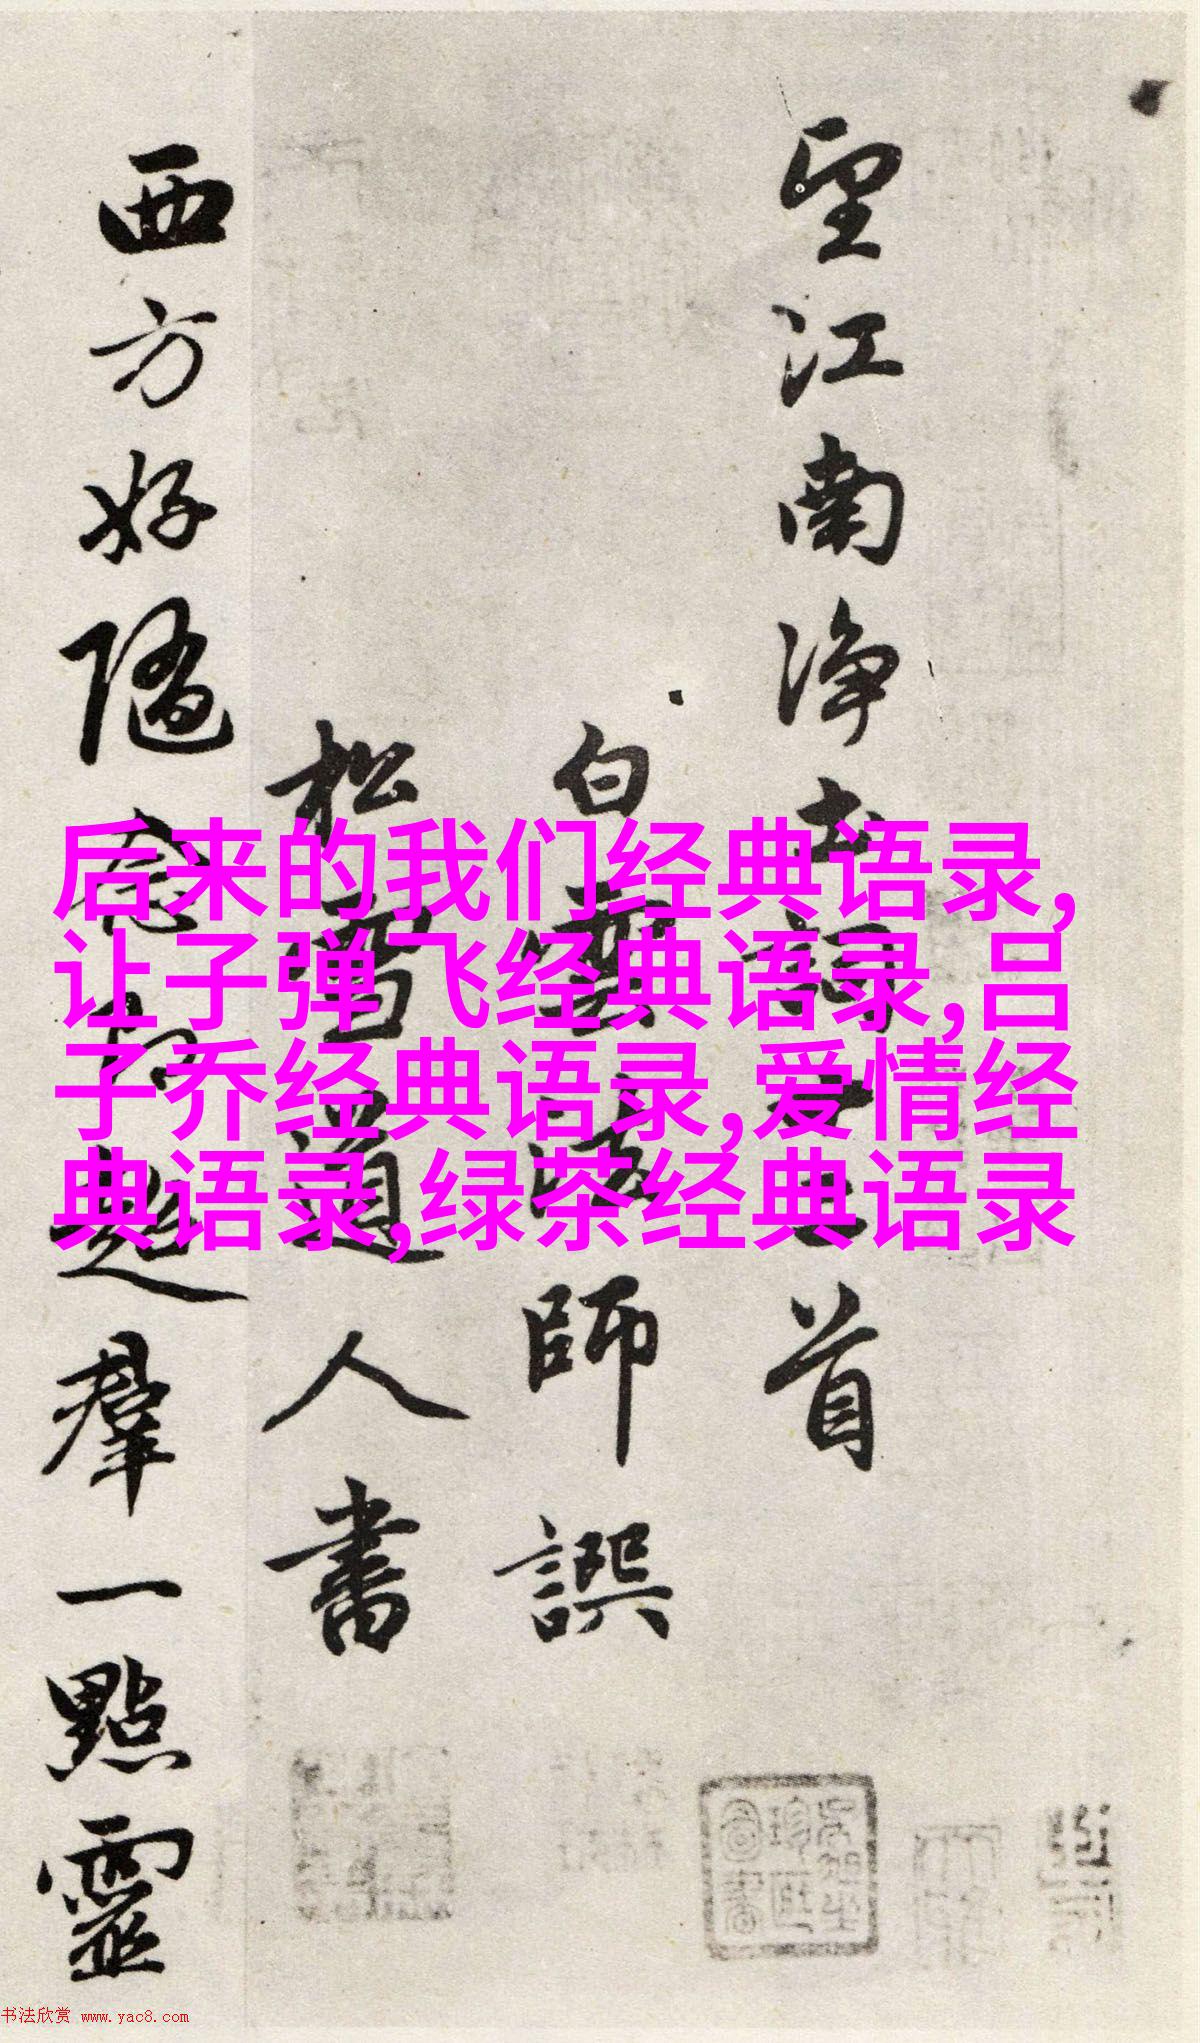 望江南净土詞十二首
白雲法師譔
松雪道人書
西方好隨念即超羣一點靈
后来的我们经典语录,
让子弹飞经典语录,吕
子乔经典语录,爱情经
典语录,绿茶经典语录
书法欣赏 www.yac8.com